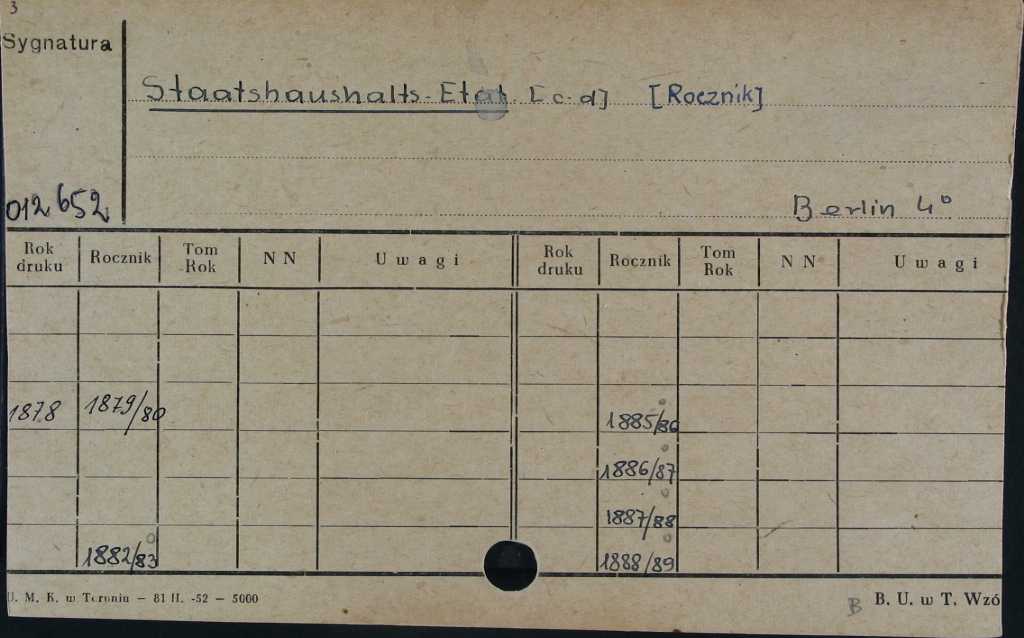 3
Sygnatura
Staatshaushalts-Etat [c.d] [Rocznik]
012652
Berlin 4°
Rok druku Rocznik Tom Rok N N Uwagi Rok druku Rocznik Tom Rok N N Uwagi
1878 1879/80 1885/86
1886/87
1887/88
1882/83 1888/89
U. M. K. w Toruniu — 81 II. -52 — 5000
B B. U. w T. Wzó